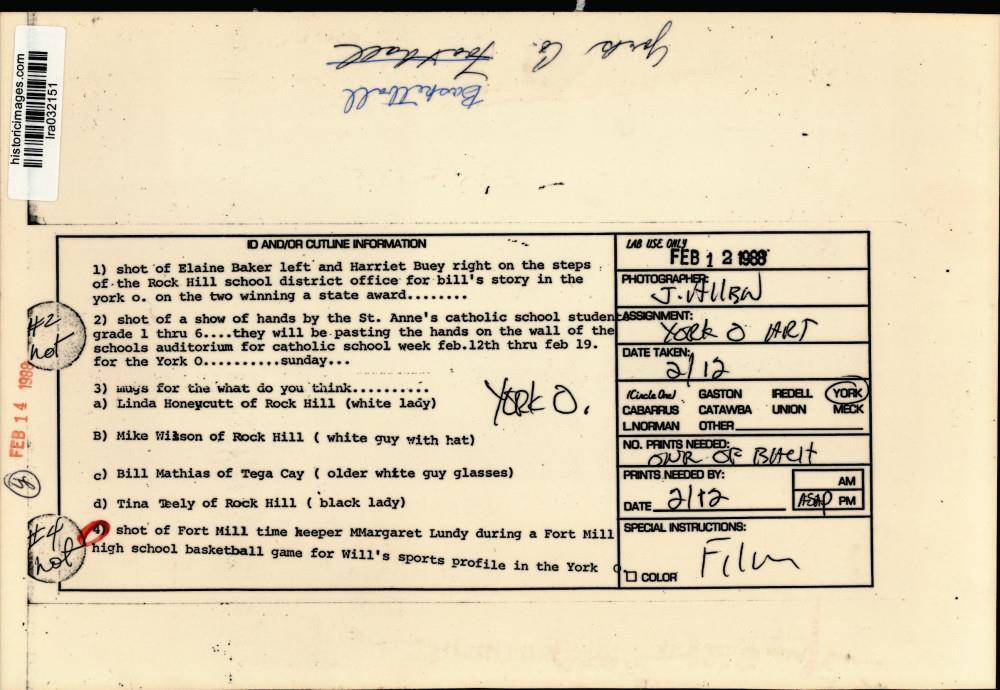 York Co.
Football
Basketball
historicimages.com
lra032151
ID AND/OR CUTLINE INFORMATION
1) shot of Elaine Baker left and Harriet Buey right on the steps
of the Rock Hill school district office for bill's story in the
york o. on the two winning a state award........
#2
not
2) shot of a show of hands by the St. Anne's catholic school student
grade 1 thru 6....they will be pasting the hands on the wall of the
schools auditorium for catholic school week feb.12th thru feb 19.
for the York O..........sunday...
3) mugs for the what do you think..........
a) Linda Honeycutt of Rock Hill (white lady)
YORK O.
B) Mike Wilson of Rock Hill ( white guy with hat)
c) Bill Mathias of Tega Cay ( older white guy glasses)
d) Tina Teely of Rock Hill ( black lady)
#4
not
4) shot of Fort Mill time keeper MMargaret Lundy during a Fort Mill
high school basketball game for Will's sports profile in the York o.
FEB 14 1988
LAB USE ONLY
FEB 12 1988
PHOTOGRAPHER:
J. Allen
ASSIGNMENT:
YORK O ART
DATE TAKEN:
2/12
(Circle One) GASTON IREDELL YORK
CABARRUS CATAWBA UNION MECK
L.NORMAN OTHER
NO. PRINTS NEEDED:
OF
PRINTS NEEDED BY:
DATE 2/12
AM
ASAP PM
SPECIAL INSTRUCTIONS:
Film
COLOR